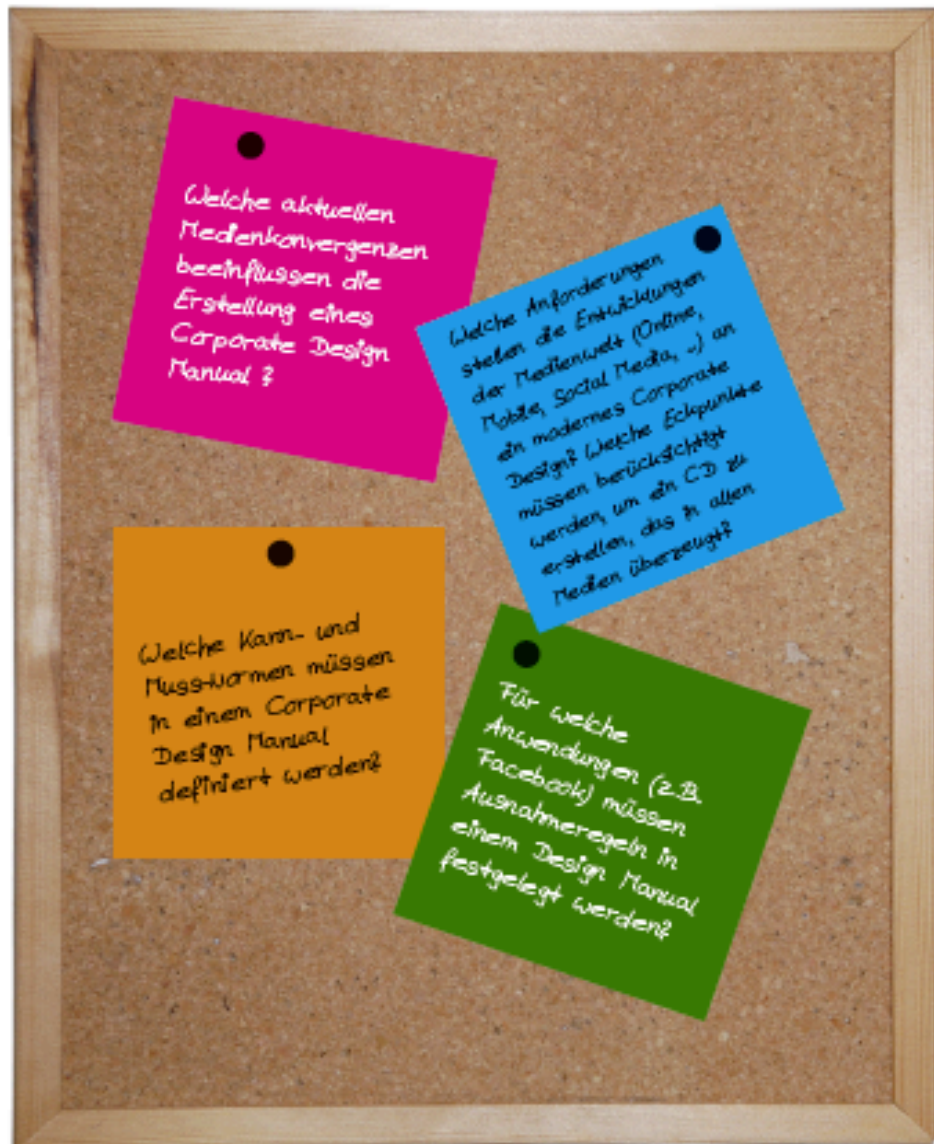 Welche aktuellen
Medienkonvergenzen
beeinflussen die
Erstellung eines
Corporate Design
Manual ?
Welche Anforderungen
stellen die Entwicklungen
der Medienwelt (Online,
Mobile, Social Media, ..) an
ein modernes Corporate
Design? Welche Eckpunkte
müssen berücksichtigt
werden, um ein CD zu
erstellen, das in allen
Medien überzeugt?
Welche Kann- und
Muss-Normen müssen
in einem Corporate
Design Manual
definiert werden?
Für welche
Anwendungen (z.B.
Facebook) müssen
Ausnahmeregeln in
einem Design Manual
festgelegt werden?